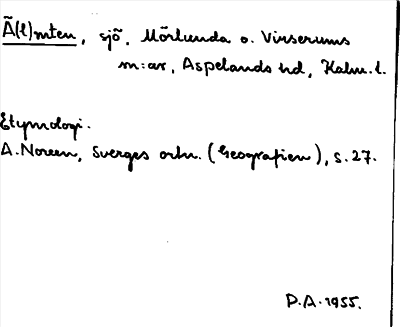 Ã(l)mten, sjö, Mörlunda o. Virserums
m:ar, Aspelands hd, Kalm. l.
Etymologi.
A. Noreen, Sverges ortn. (Geografien), s. 27.
P.A. 1955.